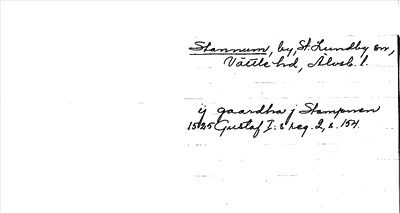 Stannum, by, St. Lundby sn,
Vättle hd, Älvsb. l.
ij gaardha j Stampnen
1525 Gustaf I:s reg. 2, s. 154.